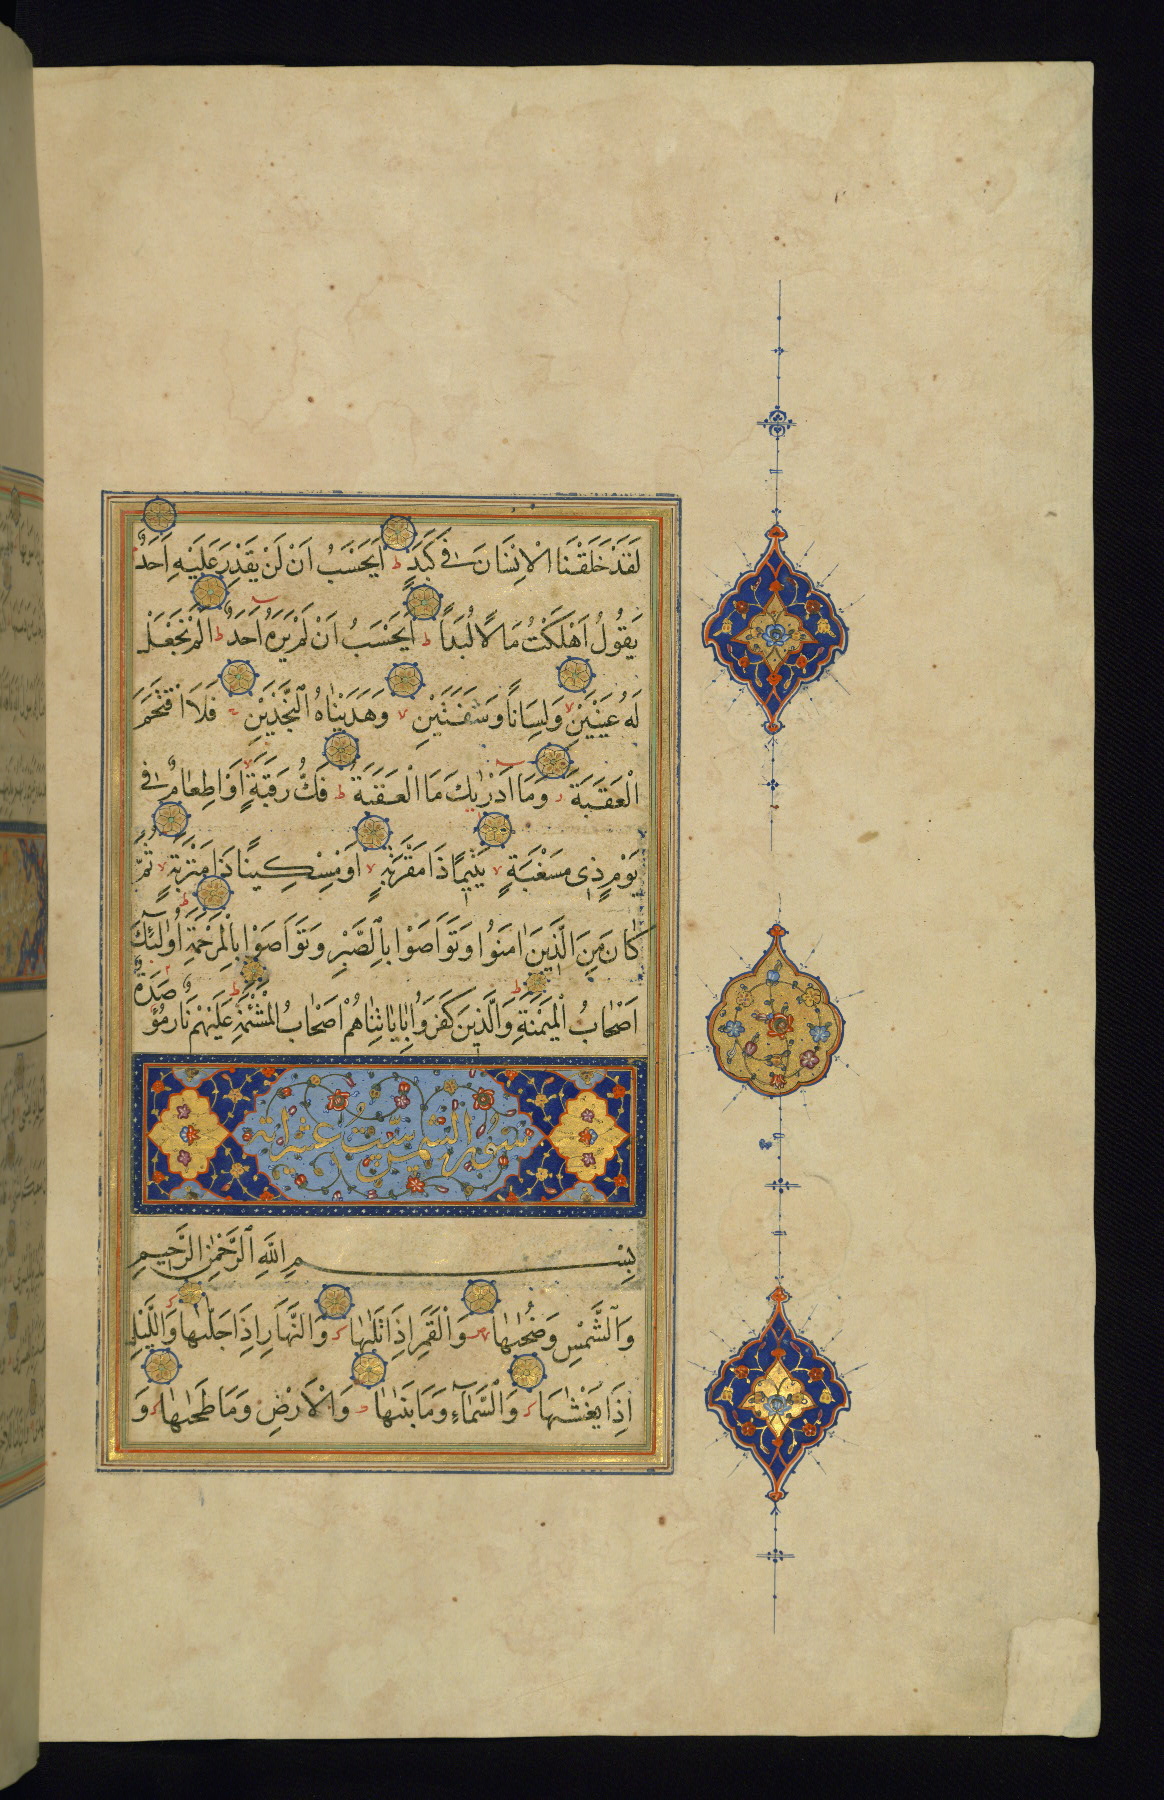 لَقَدْ خَلَقْنَا الْاِنْسَانَ فِى كَبَدٍ ط اَيَحْسَبُ اَنْ لَنْ يَقْدِرَ عَلَيْهِ اَحَدٌ
يَقُولُ اَهْلَكْتُ مَالًا لُبَدًا ط اَيَحْسَبُ اَنْ لَمْ يَرَهُ اَحَدٌ ط اَلَمْ نَجْعَلْ
لَهُ عَيْنَيْنِ لا وَلِسَانًا وَشَفَتَيْنِ لا وَهَدَيْنَاهُ النَّجْدَيْنِ فَلَا اقْتَحَمَ
الْعَقَبَةَ وَمَا اَدْرٰيكَ مَا الْعَقَبَةُ ط فَكُّ رَقَبَةٍ لا اَوْ اِطْعَامٌ فِى
يَوْمٍ ذِى مَسْغَبَةٍ لا يَتِيمًا ذَا مَقْرَبَةٍ لا اَوْ مِسْكِينًا ذَا مَتْرَبَةٍ ثُمَّ
كَانَ مِنَ الَّذِينَ اٰمَنُوا وَتَوَاصَوْا بِالصَّبْرِ وَتَوَاصَوْا بِالْمَرْحَمَةِ ط اُولٰٓئِكَ
اَصْحَابُ الْمَيْمَنَةِ ط وَالَّذِينَ كَفَرُوا بِاٰيَاتِنَا هُمْ اَصْحَابُ الْمَشْئَمَةِ ط عَلَيْهِمْ نَارٌ مُؤْصَدَةٌ
سورة الشمس ست عشر اية
بِسْمِ اللّٰهِ الرَّحْمٰنِ الرَّحِيمِ
وَالشَّمْسِ وَضُحٰيهَا وَالْقَمَرِ اِذَا تَلٰيهَا وَالنَّهَارِ اِذَا جَلّٰيهَا وَاللَّيْلِ
اِذَا يَغْشٰيهَا وَالسَّمَآءِ وَمَا بَنٰيهَا وَالْاَرْضِ وَمَا طَحٰيهَا وَ